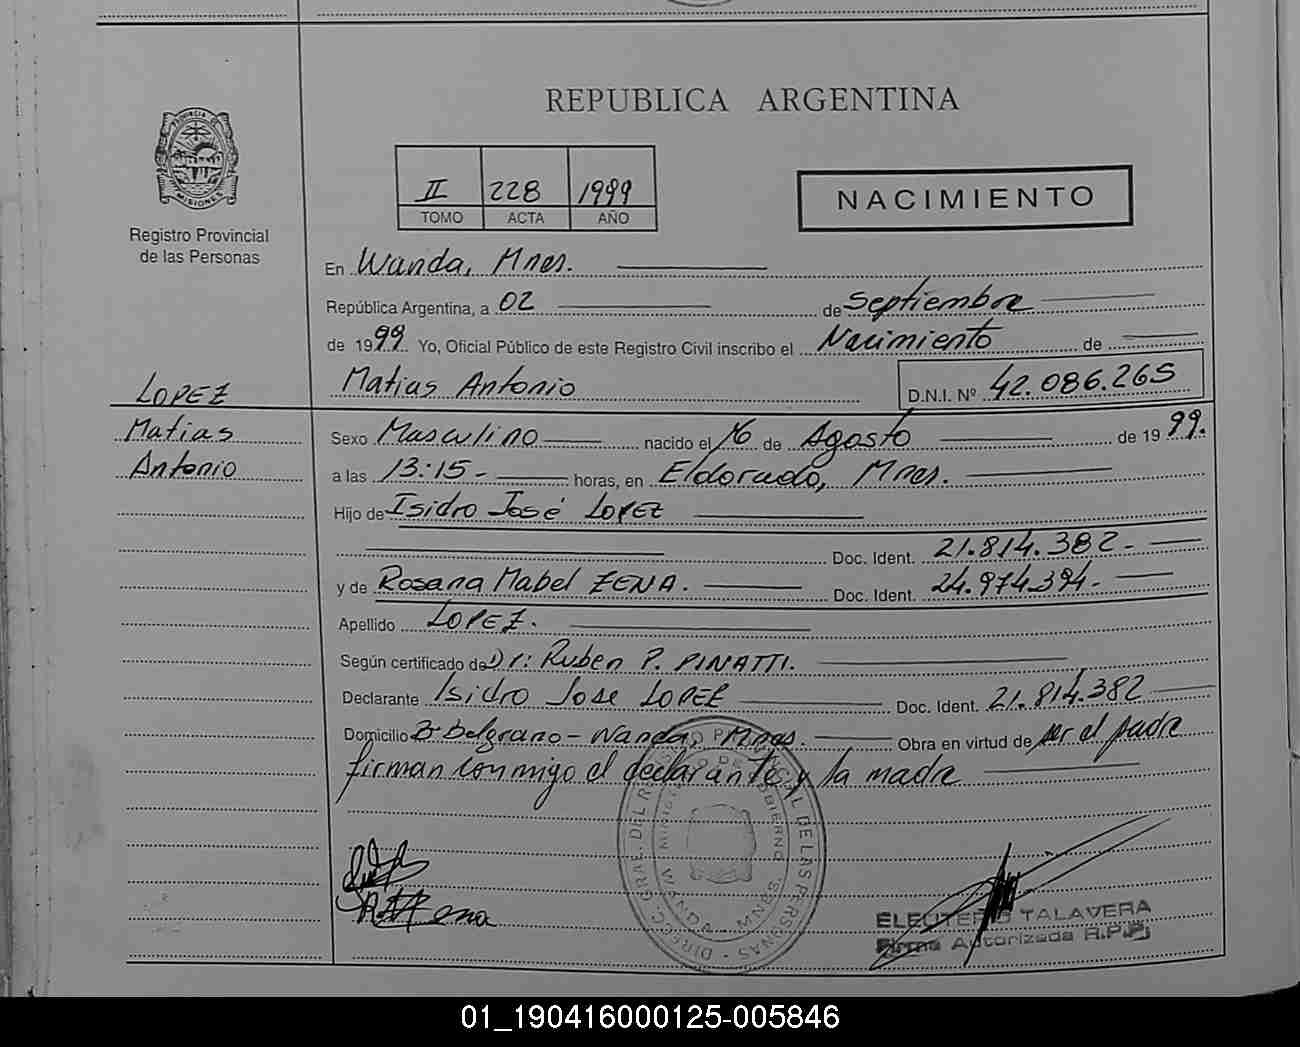 REPUBLICA ARGENTINA
PROVINCIA DE MISIONES
Registro Provincial
de las Personas
II 228 1999
TOMO ACTA AÑO
NACIMIENTO
En Wanda, Mnes.
República Argentina, a 02 de Septiembre
de 1999 Yo, Oficial Público de este Registro Civil inscribo el Nacimiento de
Matias Antonio D.N.I. Nº 42.086.265
LOPEZ
Matias
Antonio
Sexo Masculino nacido el 16 de Agosto de 1999.
a las 13:15- horas, en Eldorado, Mnes.
Hijo de Isidro José LOPEZ
Doc. Ident. 21.814.382-
y de Rosana Mabel ZENA. Doc. Ident. 24.974.394-
Apellido LOPEZ.
Según certificado de Dr: Ruben P. PINATTI.
Declarante Isidro Jose LOPEZ Doc. Ident. 21.814.382
Domicilio Bº Belgrano - Wanda, Mnes. Obra en virtud de ser el padre
firman conmigo el declarante y la madre
DIREC. GRAL. DEL REGISTRO PROVINCIAL DE LAS PERSONAS
MINISTERIO DE GOBIERNO
WANDA - MNES.
ELEUTERIO TALAVERA
Firma Autorizada R.P.P.
01_190416000125-005846